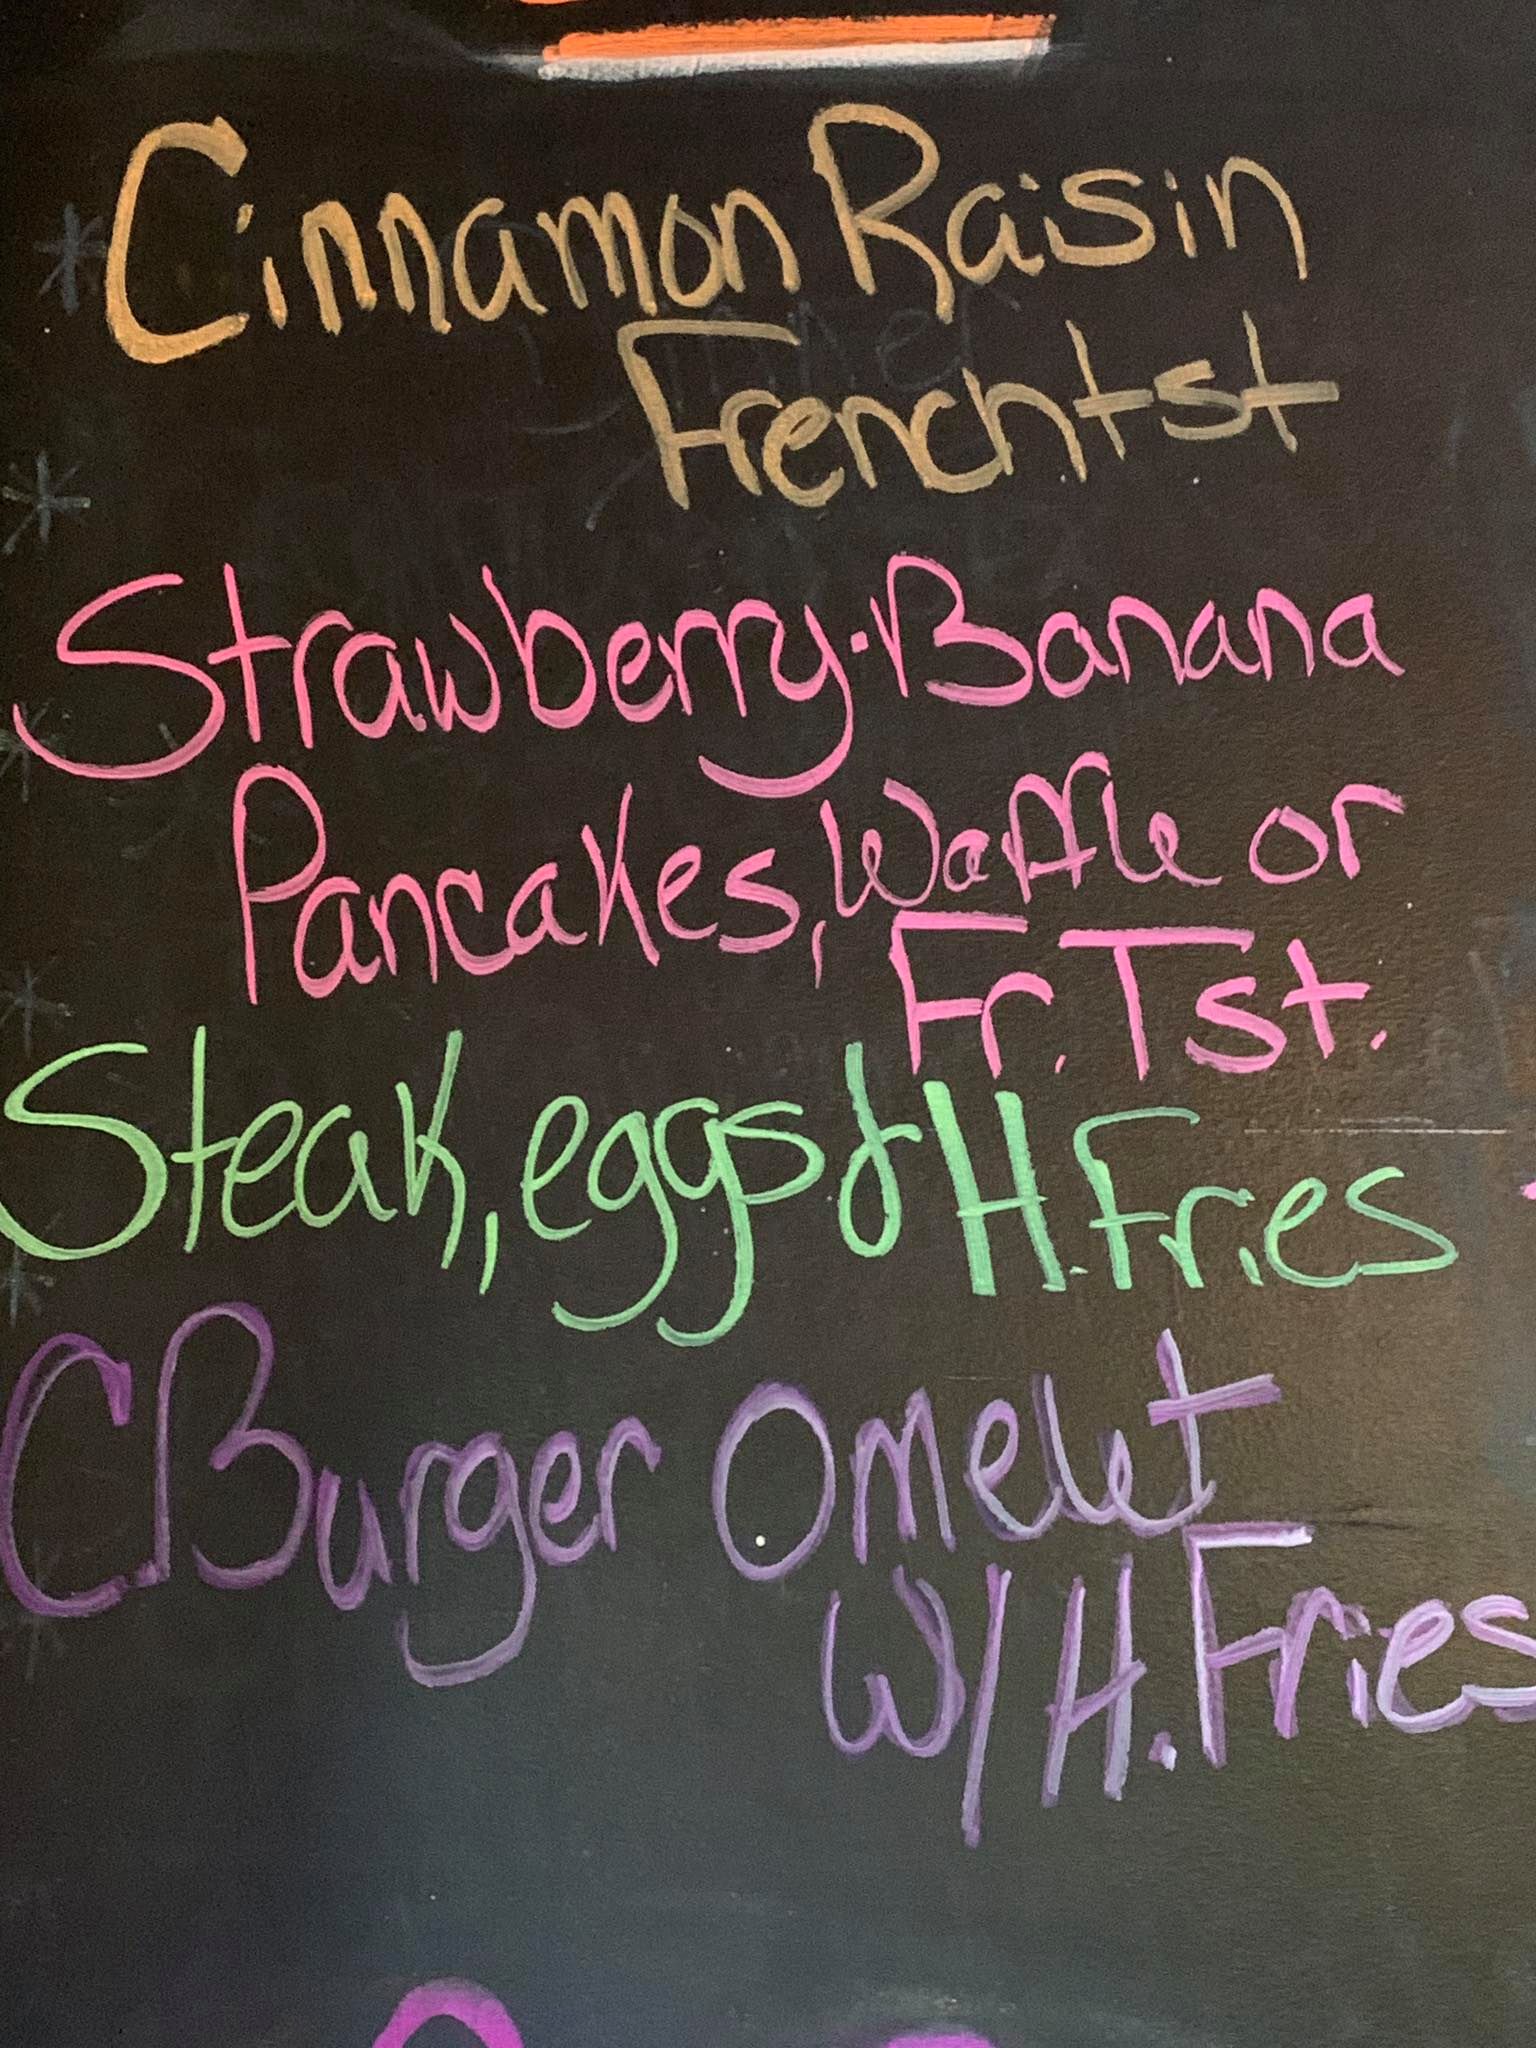 Cinnamon Raisin
French tst
Strawberry-Banana
Pancakes, Waffle or
Fr. Tst.
Steak, eggs & H. Fries
CBurger Omelet
W/ H. Fries